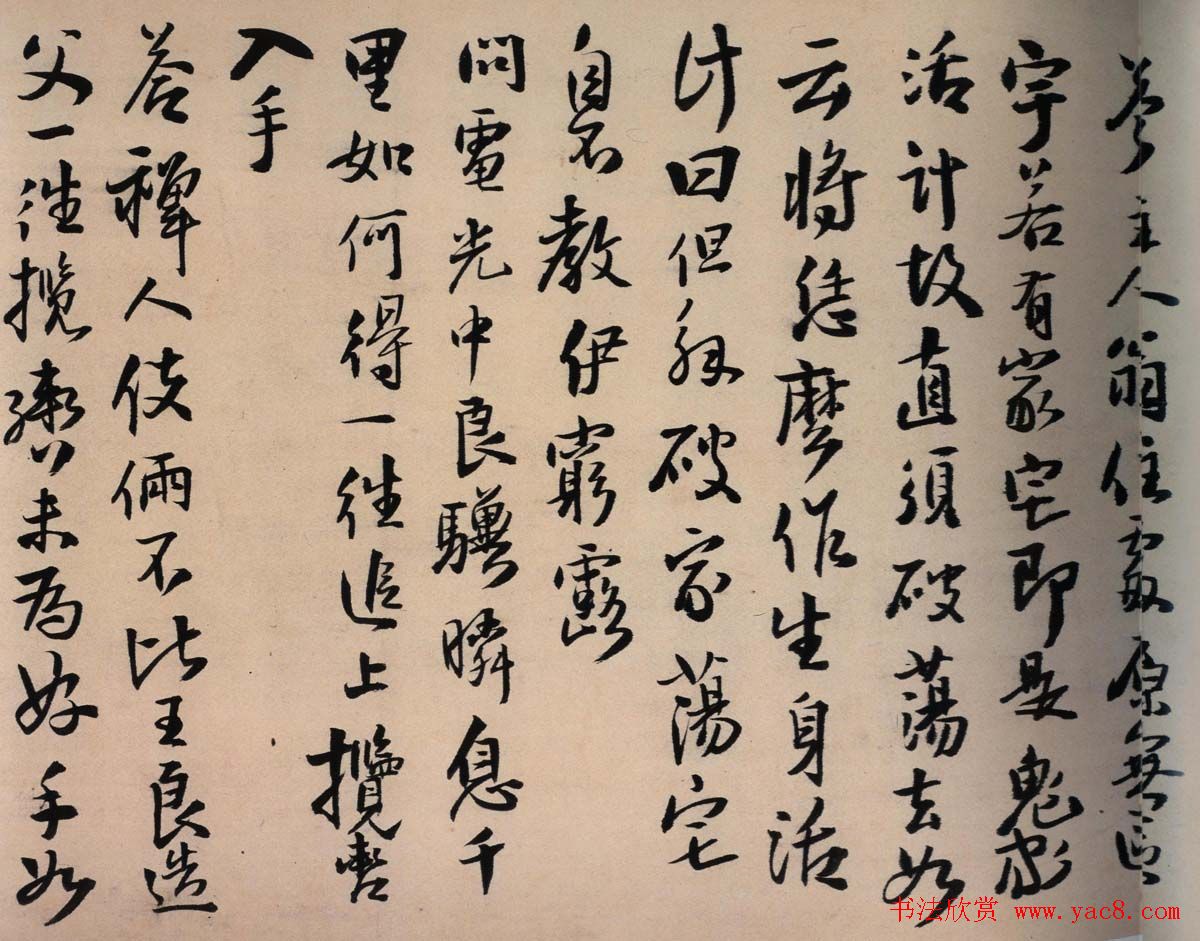 答主人翁住處原無區
宇若有家宅即是鬼家
活計故直須破蕩去如
云將恁麼作生身活
計曰但破家蕩宅
自不教伊窮露
問電光中良驥瞬息千
里如何得一往追上攬轡
入手
答禪人伎倆不比王良造
父一往攬轡未為好手如
书法欣赏 www.yac8.com